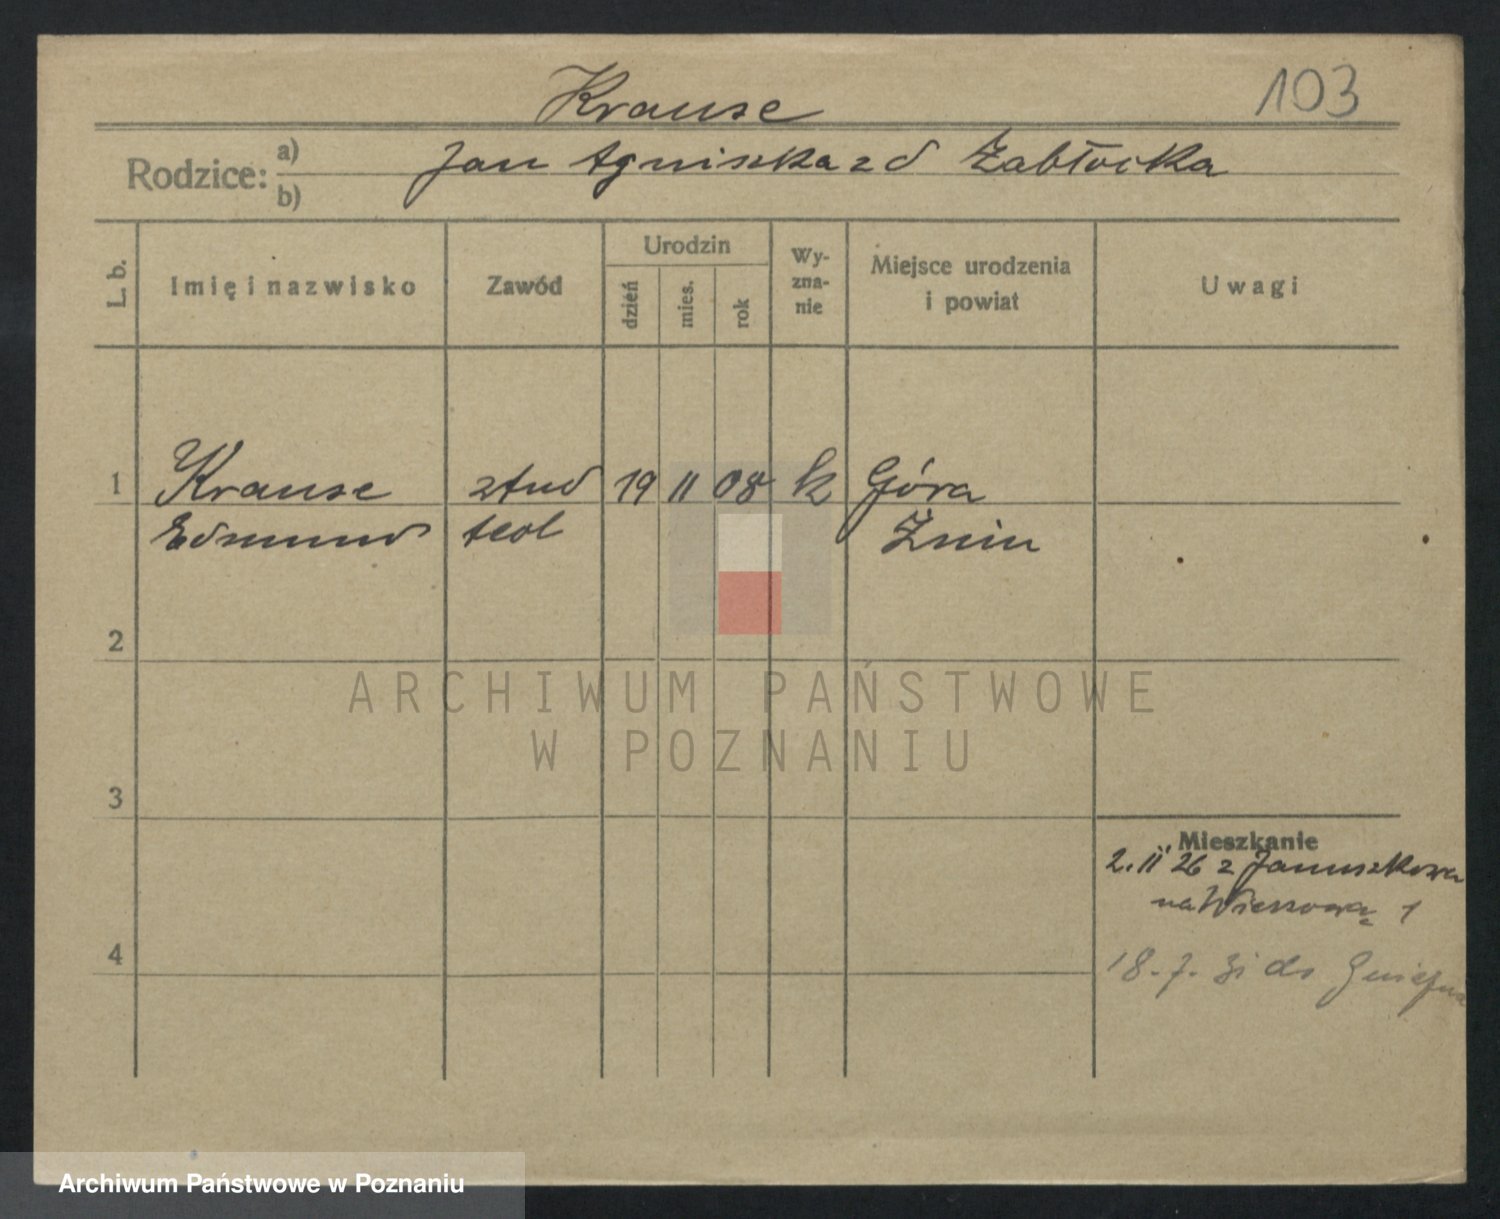 103
Krause
Rodzice: a) b)
Jan Agniszka zd Zabłocka
L. b.
Imię i nazwisko
Zawód
Urodzin
dzień
mies.
rok
Wy-
zna-
nie
Miejsce urodzenia
i powiat
Uwagi
1
Krause stud 19 11 08 k Góra
Edmund teol Żnin
2
3
4
Mieszkanie
2. II 26 z Januszkowa
na 1
18. 7. 31 do
ARCHIWUM PAŃSTWOWE
W POZNANIU
Archiwum Państwowe w Poznaniu